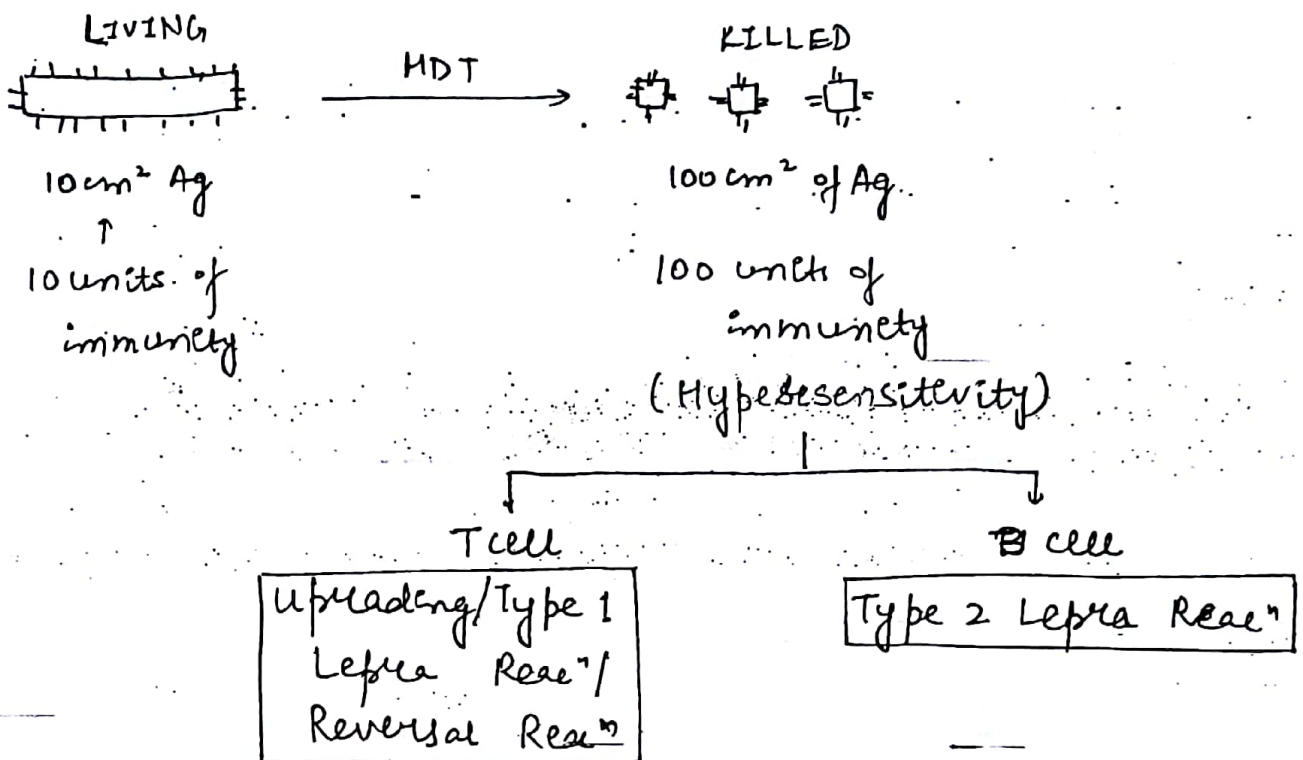 LIVING
MDT
KILLED
10 cm² Ag
↑
10 units of
immunity
100 cm² of Ag.
100 units of
immunity
(Hypersensitivity)
T cell
Upgrading/Type 1
Lepra Reacⁿ/
Reversal Reacⁿ
B cell
Type 2 Lepra Reacⁿ